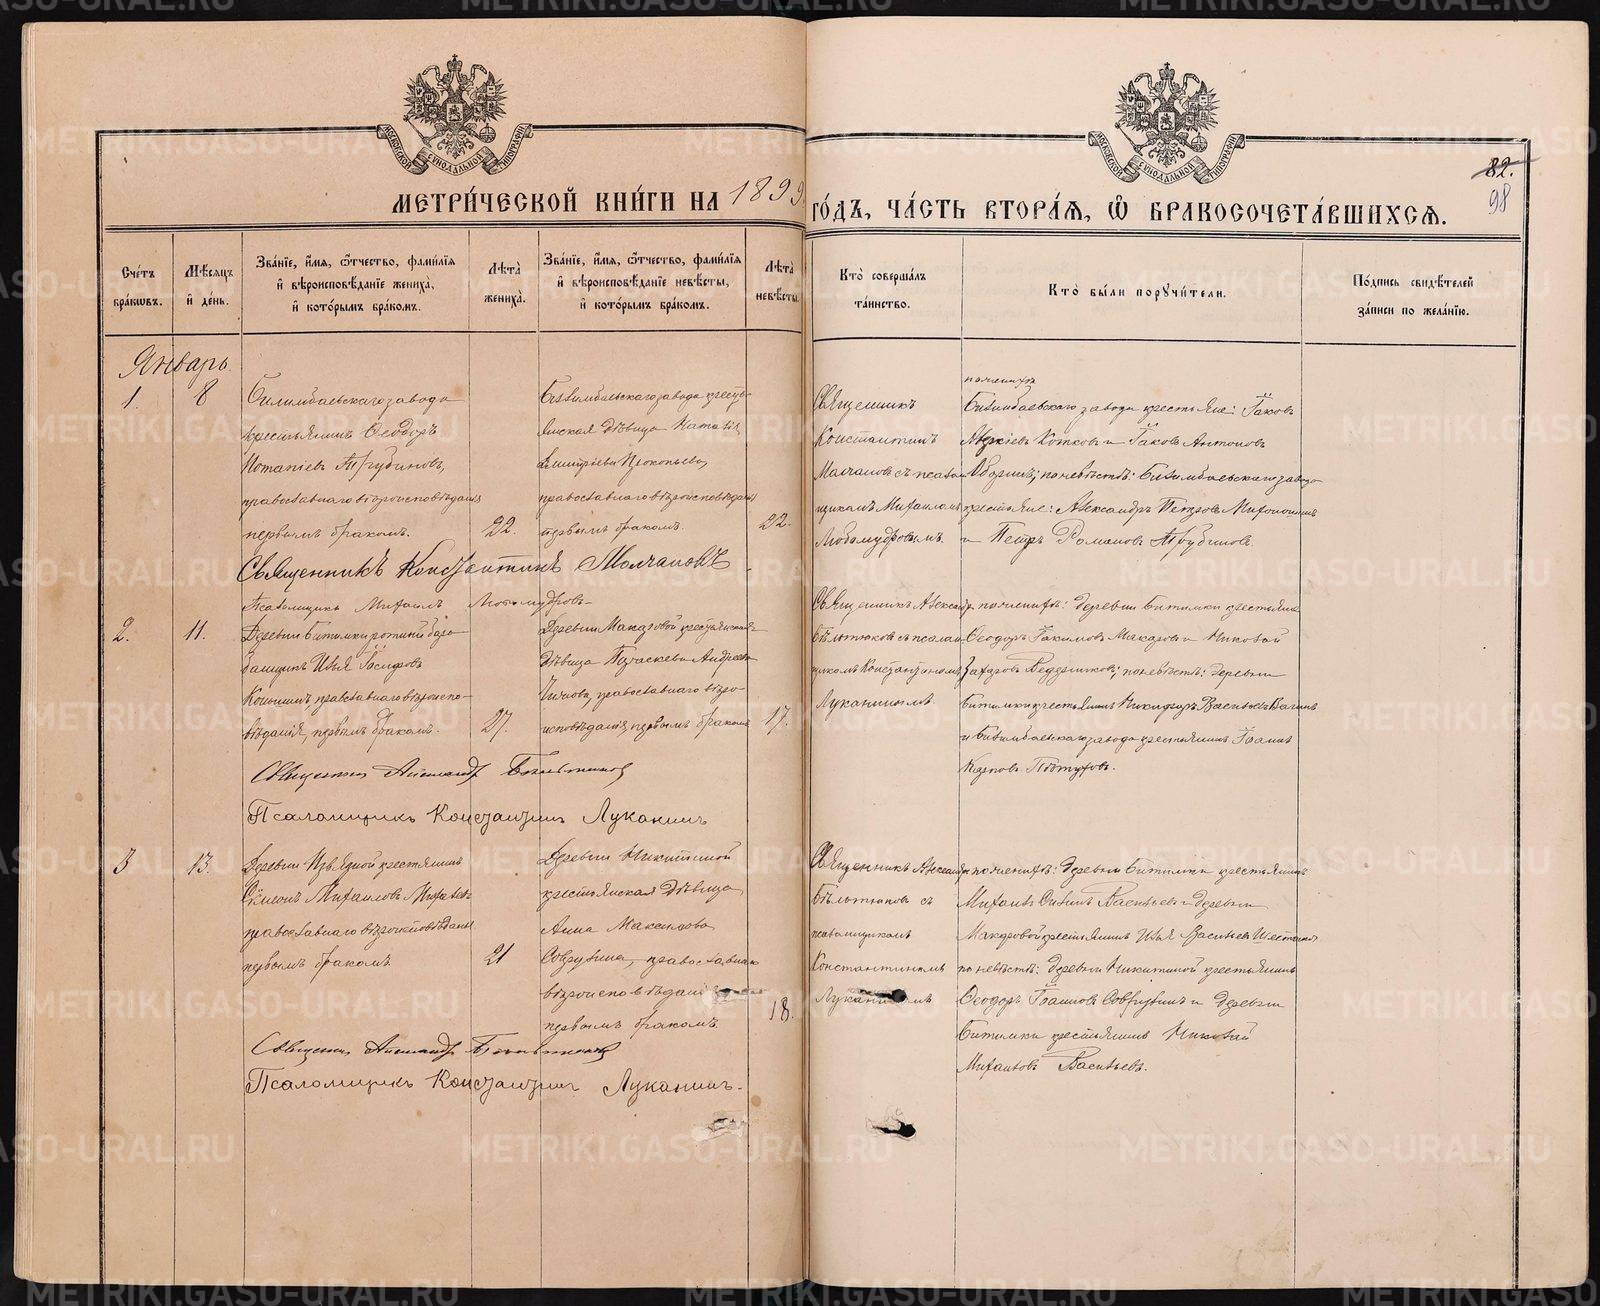 МОСКОВСКОЙ СУНОДАЛЬНОЙ ТИПОГРАФІИ
МОСКОВСКОЙ СУНОДАЛЬНОЙ ТИПОГРАФІИ
МЕТРИ́ЧЕСКОЙ КНИ́ГИ НА 1899 ГО́ДЪ, ЧА́СТЬ ВТОРА́Я, Ѿ БРАКОСОЧЕТА́ВШИХСѦ.
82.
98
Сче́тъ бра́кωвъ.
Мѣ́сяцъ и҆ де́нь.
Зва́нїе, и҆́мя, ѻ҆́тчество, фами́лїя и҆ вѣроисповѣ́данїе жениха̀, и҆ кото́рымъ бра́комъ.
Лѣта̀ жениха̀.
Зва́нїе, и҆́мя, ѻ҆́тчество, фами́лїя и҆ вѣроисповѣ́данїе невѣ́сты, и҆ кото́рымъ бра́комъ.
Лѣта̀ невѣ́сты.
Кто̀ соверша́лъ та́инство.
Кто̀ бы́ли порꙋчи́тели.
По́дпись свидѣ́телей за́писи по жела́нїю.
Январь
1.
8
Билимбаевскаго завода
крестьянинъ Ѳеодоръ
Потапіевъ
православнаго вѣроисповѣданія
первымъ бракомъ.
22.
Билимбаевскаго завода кресть-
янская дѣвица Наталія
Димитріева Прокопьева,
православнаго вѣроисповѣданія
первымъ бракомъ.
22.
Священникъ
Константинъ
Молчановъ съ псалом-
щикомъ Михаиломъ
Любомудровымъ.
по женихѣ
Билимбаевскаго завода крестьяне: Іаковъ
Котковъ и Іаковъ Антоновъ
по невѣстѣ: Билимбаевскаго завода
крестьяне: Александръ Петровъ
и Петръ Романовъ
Священникъ Константинъ Молчановъ
Псаломщикъ Михаилъ Любомудровъ
2.
11.
Деревни Битимки
Илья Іосифовъ
православнаго вѣроиспо-
вѣданія, первымъ бракомъ.
27.
Деревни Макаровой крестьянская
дѣвица Параскева Андреева
православнаго вѣро-
исповѣданія, первымъ бракомъ
17.
Священникъ Александръ
Бѣльтюковъ съ псалом-
щикомъ Константиномъ
Луканинымъ
по женихѣ: деревни Битимки крестьяне
Ѳеодоръ Іакимовъ Макаровъ и Николай
Захаровъ по невѣстѣ: деревни
Битимки крестьянинъ Никифоръ Васильевъ
и Билимбаевскаго завода крестьянинъ Іоаннъ
Карповъ
Священникъ Александръ Бѣльтюковъ
Псаломщикъ Константинъ Луканинъ
3
13.
Деревни крестьянинъ
Симеонъ Михаиловъ
православнаго вѣроисповѣданія
первымъ бракомъ
21
Деревни Никитиной
крестьянская дѣвица
Анна Максимова
православнаго
вѣроисповѣданія
первымъ бракомъ.
18.
Священникъ Александръ
Бѣльтюковъ съ
псаломщикомъ
Константиномъ
Луканинымъ
по женихѣ: деревни Битимки крестьянинъ
Михаилъ Васильевъ и деревни
Макаровой крестьянинъ Илья Васильевъ
по невѣстѣ: деревни Никитиной крестьянинъ
Ѳеодоръ Іоанновъ и деревни
Битимки крестьянинъ Николай
Михаиловъ Васильевъ.
Священникъ Александръ Бѣльтюковъ
Псаломщикъ Константинъ Луканинъ.
METRIKI.GASO-URAL.RU